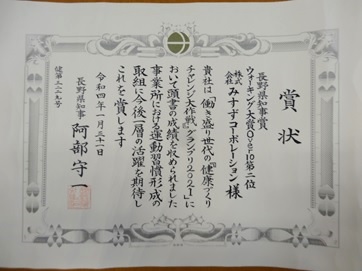 賞状
長野県知事賞
ウォーキング大賞Over10第二位
株式会社 みすずコーポレーション 様
貴社は「働き盛り世代の健康づくり
チャレンジ大作戦グランプリ2021」に
おいて頭書の成績を収められました
事業所における運動習慣形成の
取組に今後一層の活躍を期待し
これを賞します
令和四年一月三十一日
長野県知事 阿部守一